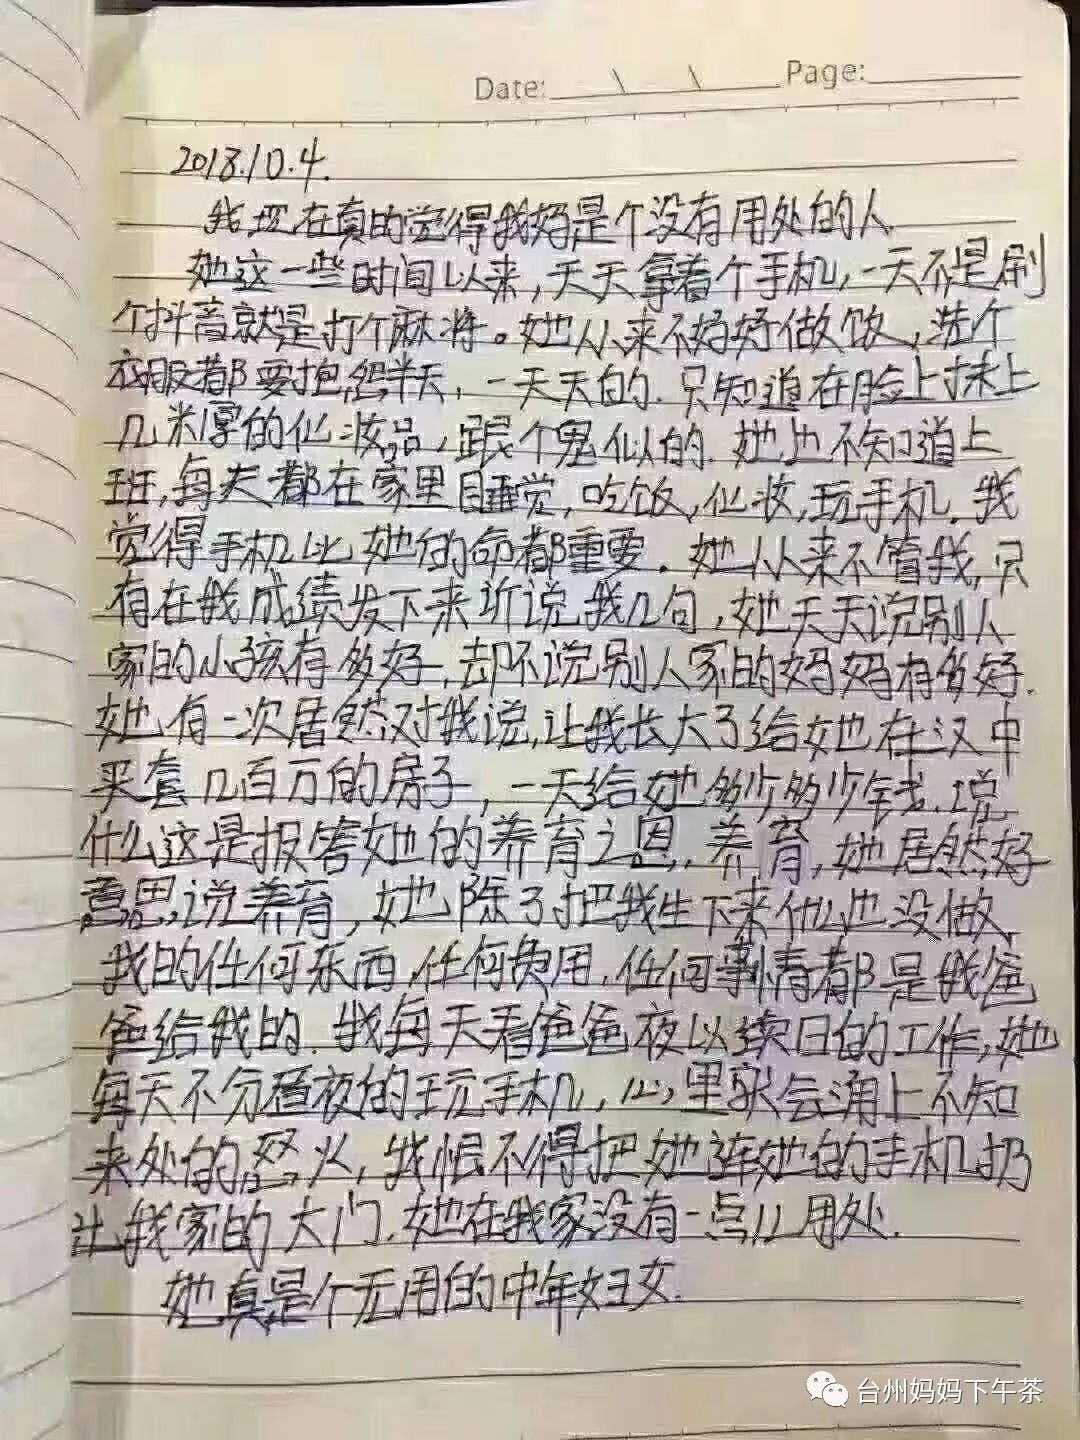 Date: \ \ Page:
2018.10.4.
我现在真的觉得我妈是个没有用处的人
她这一些时间以来，天天拿着个手机，一天不是刷
个抖音就是打个麻将。她从来不好好做饭，洗个
衣服都要抱怨半天，一天天的.只知道在脸上抹上
几米厚的化妆品，跟个鬼似的.她也不知道上
班，每天都在家里睡觉，吃饭，化妆，玩手机.我
觉得手机比她的命都重要。她从来不管我，只
有在我成绩发下来听说我几句，她天天说别人
家的小孩有多好，却不说别人家的妈妈有多好.
她有一次居然对我说，让我长大了给她在汉中
买套几百万的房子，一天给她多少多少钱.说
什么这是报答她的养育之恩，养育，她居然好
意思说养育，她除了把我生下来什么也没做
我的任何东西，任何费用，任何事情都是我爸
爸给我的.我每天看爸爸夜以续日的工作，她
每天不分昼夜的玩手机，心里就会涌上不知
来处的怒火，我恨不得把她连她的手机扔
出我家的大门.她在我家没有一点儿用处.
她真是个无用的中年妇女.
台州妈妈下午茶